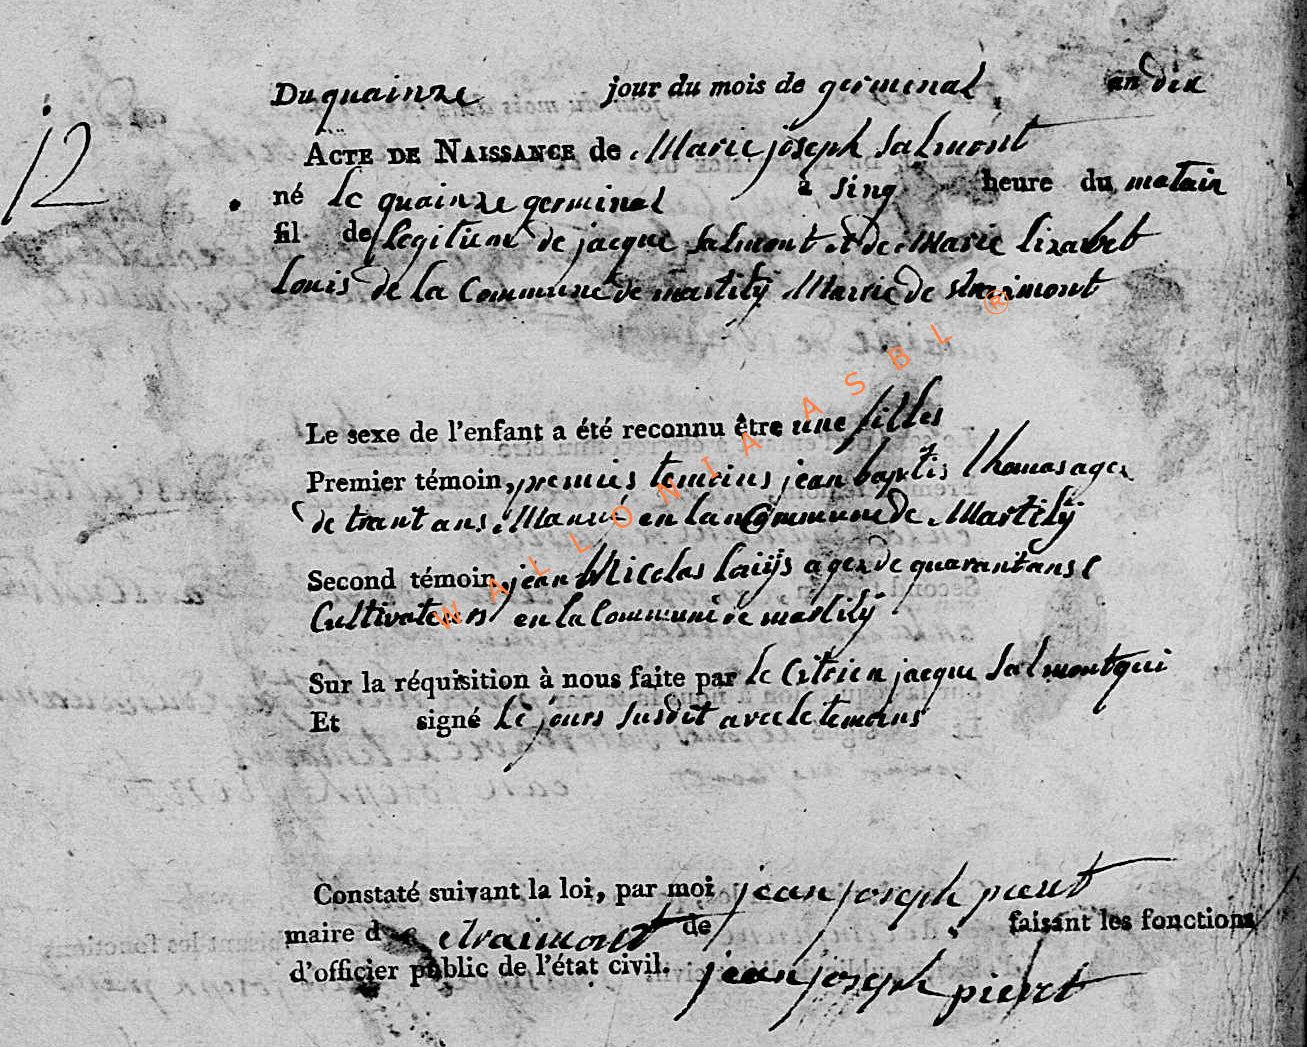 12
Du quainze jour du mois de germinal an dix
ACTE DE NAISSANCE de Marie joseph Salmont
né le quainze germinal à sinq heure du matain
fil de legitime de jacque Salmont et de Marie lizabet
Louis de la Commune de martily Mairie de straimont
Le sexe de l'enfant a été reconnu être une filles
Premier témoin, premies temoins jean baptis thomas agez
de trant ans en la Commune de Martily
Second témoin, jean Nicolas agez de quarant ans
Cultivateurs en la Commune de martily
Sur la réquisition à nous faite par le Citoien jacque Salmont qui
Et signé le jours susdit avec le temoins
Constaté suivant la loi, par moi jean joseph pieret
maire de straimont de faisant les fonctions
d'officier public de l'état civil. jean joseph pieret
WALLONIA ASBL ®